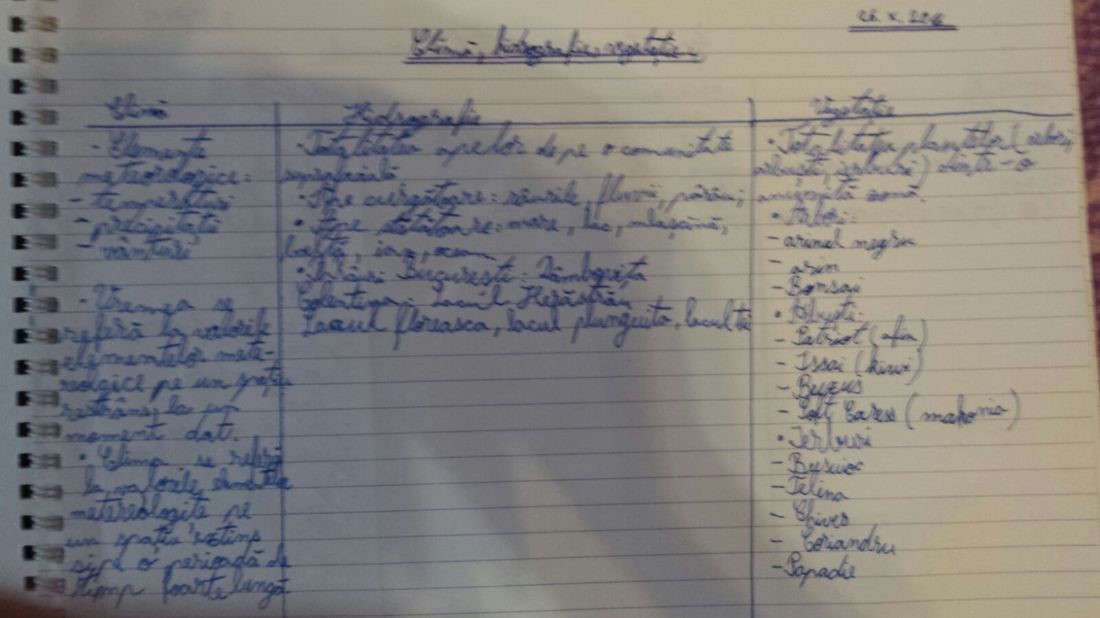 26. X. 2016
Climă, hidrografie, vegetație.
Climă
- Elemente
meteorologice:
- temperaturi
- precipitații
- vânturi
- Vremea se
referă la valorile
elementelor mete-
reologice pe un spațiu
restrâns, la un
moment dat.
• Clima se referă
la valorile elementelor
metereologite pe
un spațiu extins
și pe o perioadă de
timp foarte lungă
Hidrografie
• Totalitatea apelor de pe o comunitate
• Ape curgătoare: râurile, fluvii, pârâu;
• Ape stătătoare: mare, lac, mlaștină,
baltă,
București: Dâmbovița
Colentina: Lacul Herăstrău
Lacul floreasca, lacul plumbuita, lacul te
Vegetație
• Totalitatea plantelor (arbori,
arbuști, ierburi) dintr-o
anumită zonă.
• Arbori:
- arinul negru
- arin
- Bonsai
• Arbuști:
- Patriot (afin)
- Issai (kiwi)
- Buxus
- Soft Caress (mahonia)
• Ierburi
- Busuioc
- Țelina
- Chives
- Coriandru
- Papadie